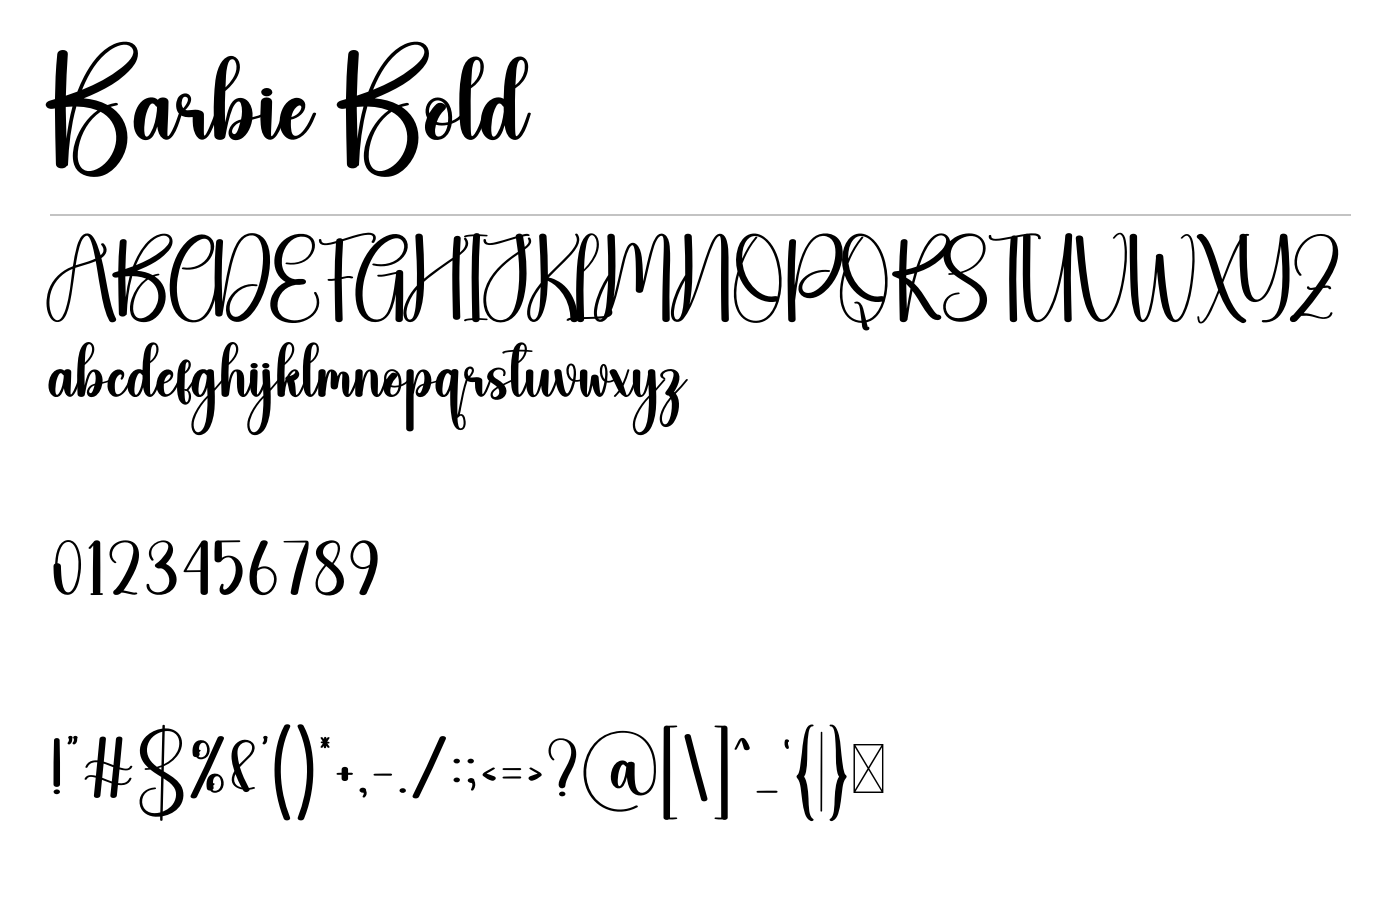 Barbie Bold
ABCDEFGHIJKLMNOPQRSTUVWXYZ
abcdefghijklmnopqrstuvwxyz
0123456789
!"#$%&'()*+,-./:;<=>?@[\]^_`{|}